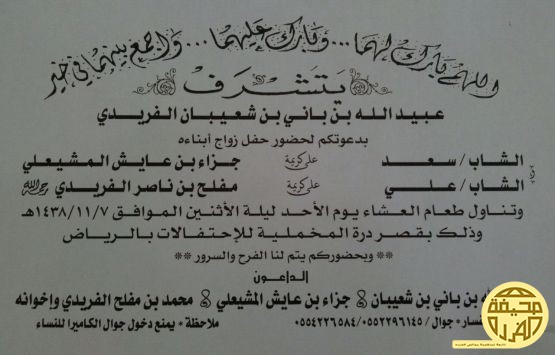 اللهم بارك لهما... وبارك عليهما... واجمع بينهما في خير
يتشرف
عبيد الله بن باني بن شعيبان الفريدي
بدعوتكم لحضور حفل زواج أبناءه
الشاب / سعد على كريمة جزاء بن عايش المشيعلي
الشاب / علي على كريمة مفلح بن ناصر الفريدي رحمه الله
وتناول طعام العشاء يوم الأحد ليلة الأثنين الموافق ١٤٣٨/١١/٧هـ
وذلك بقصر درة المخملية للإحتفالات بالرياض
** وبحضوركم يتم لنا الفرح والسرور **
الداعون
محمد بن مفلح الفريدي وإخوانه جزاء بن عايش المشيعلي الله بن باني بن شعيبان
ملاحظة * يمنع دخول جوال الكاميرا للنساء
جوال / ٠٥٥٢٢٩٦١٤٥ / ٠٥٥٤٢٢٦٥٨٤
صحيفة